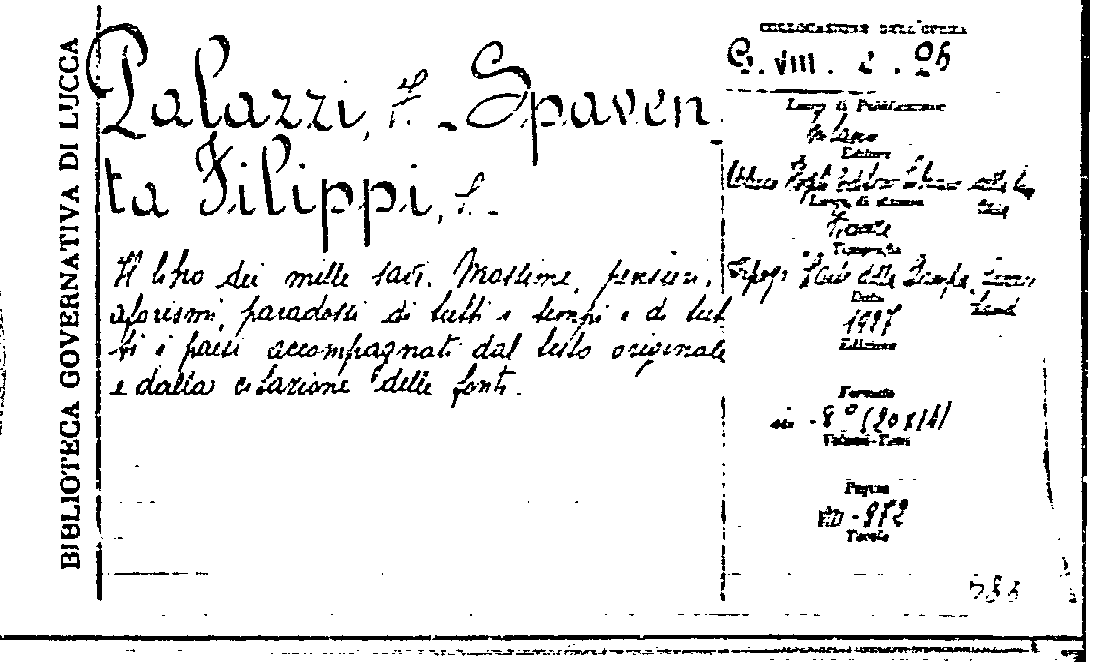 BIBLIOTECA GOVERNATIVA DI LUCCA
Palazzi, F. - Spaven
ta Filippi, S. -
Il libro dei mille savi. Massime, pensieri,
aforismi, paradossi di tutti i tempi e di tut
ti i paesi accompagnati dal testo originale
e dalla citazione delle fonti.
COLLOCAZIONE DELL'OPERA
G. VIII. 2. 26
Luogo di Pubblicazione
Milano
Editore
Ulrico Hoepli Editore
Luogo di stampa
Firenze
Tipografia
Tipogr.
Data
1927
Edizione
Formato
in -8° (20x14)
Volumi-Tomi
Pagine
-952
Tavole